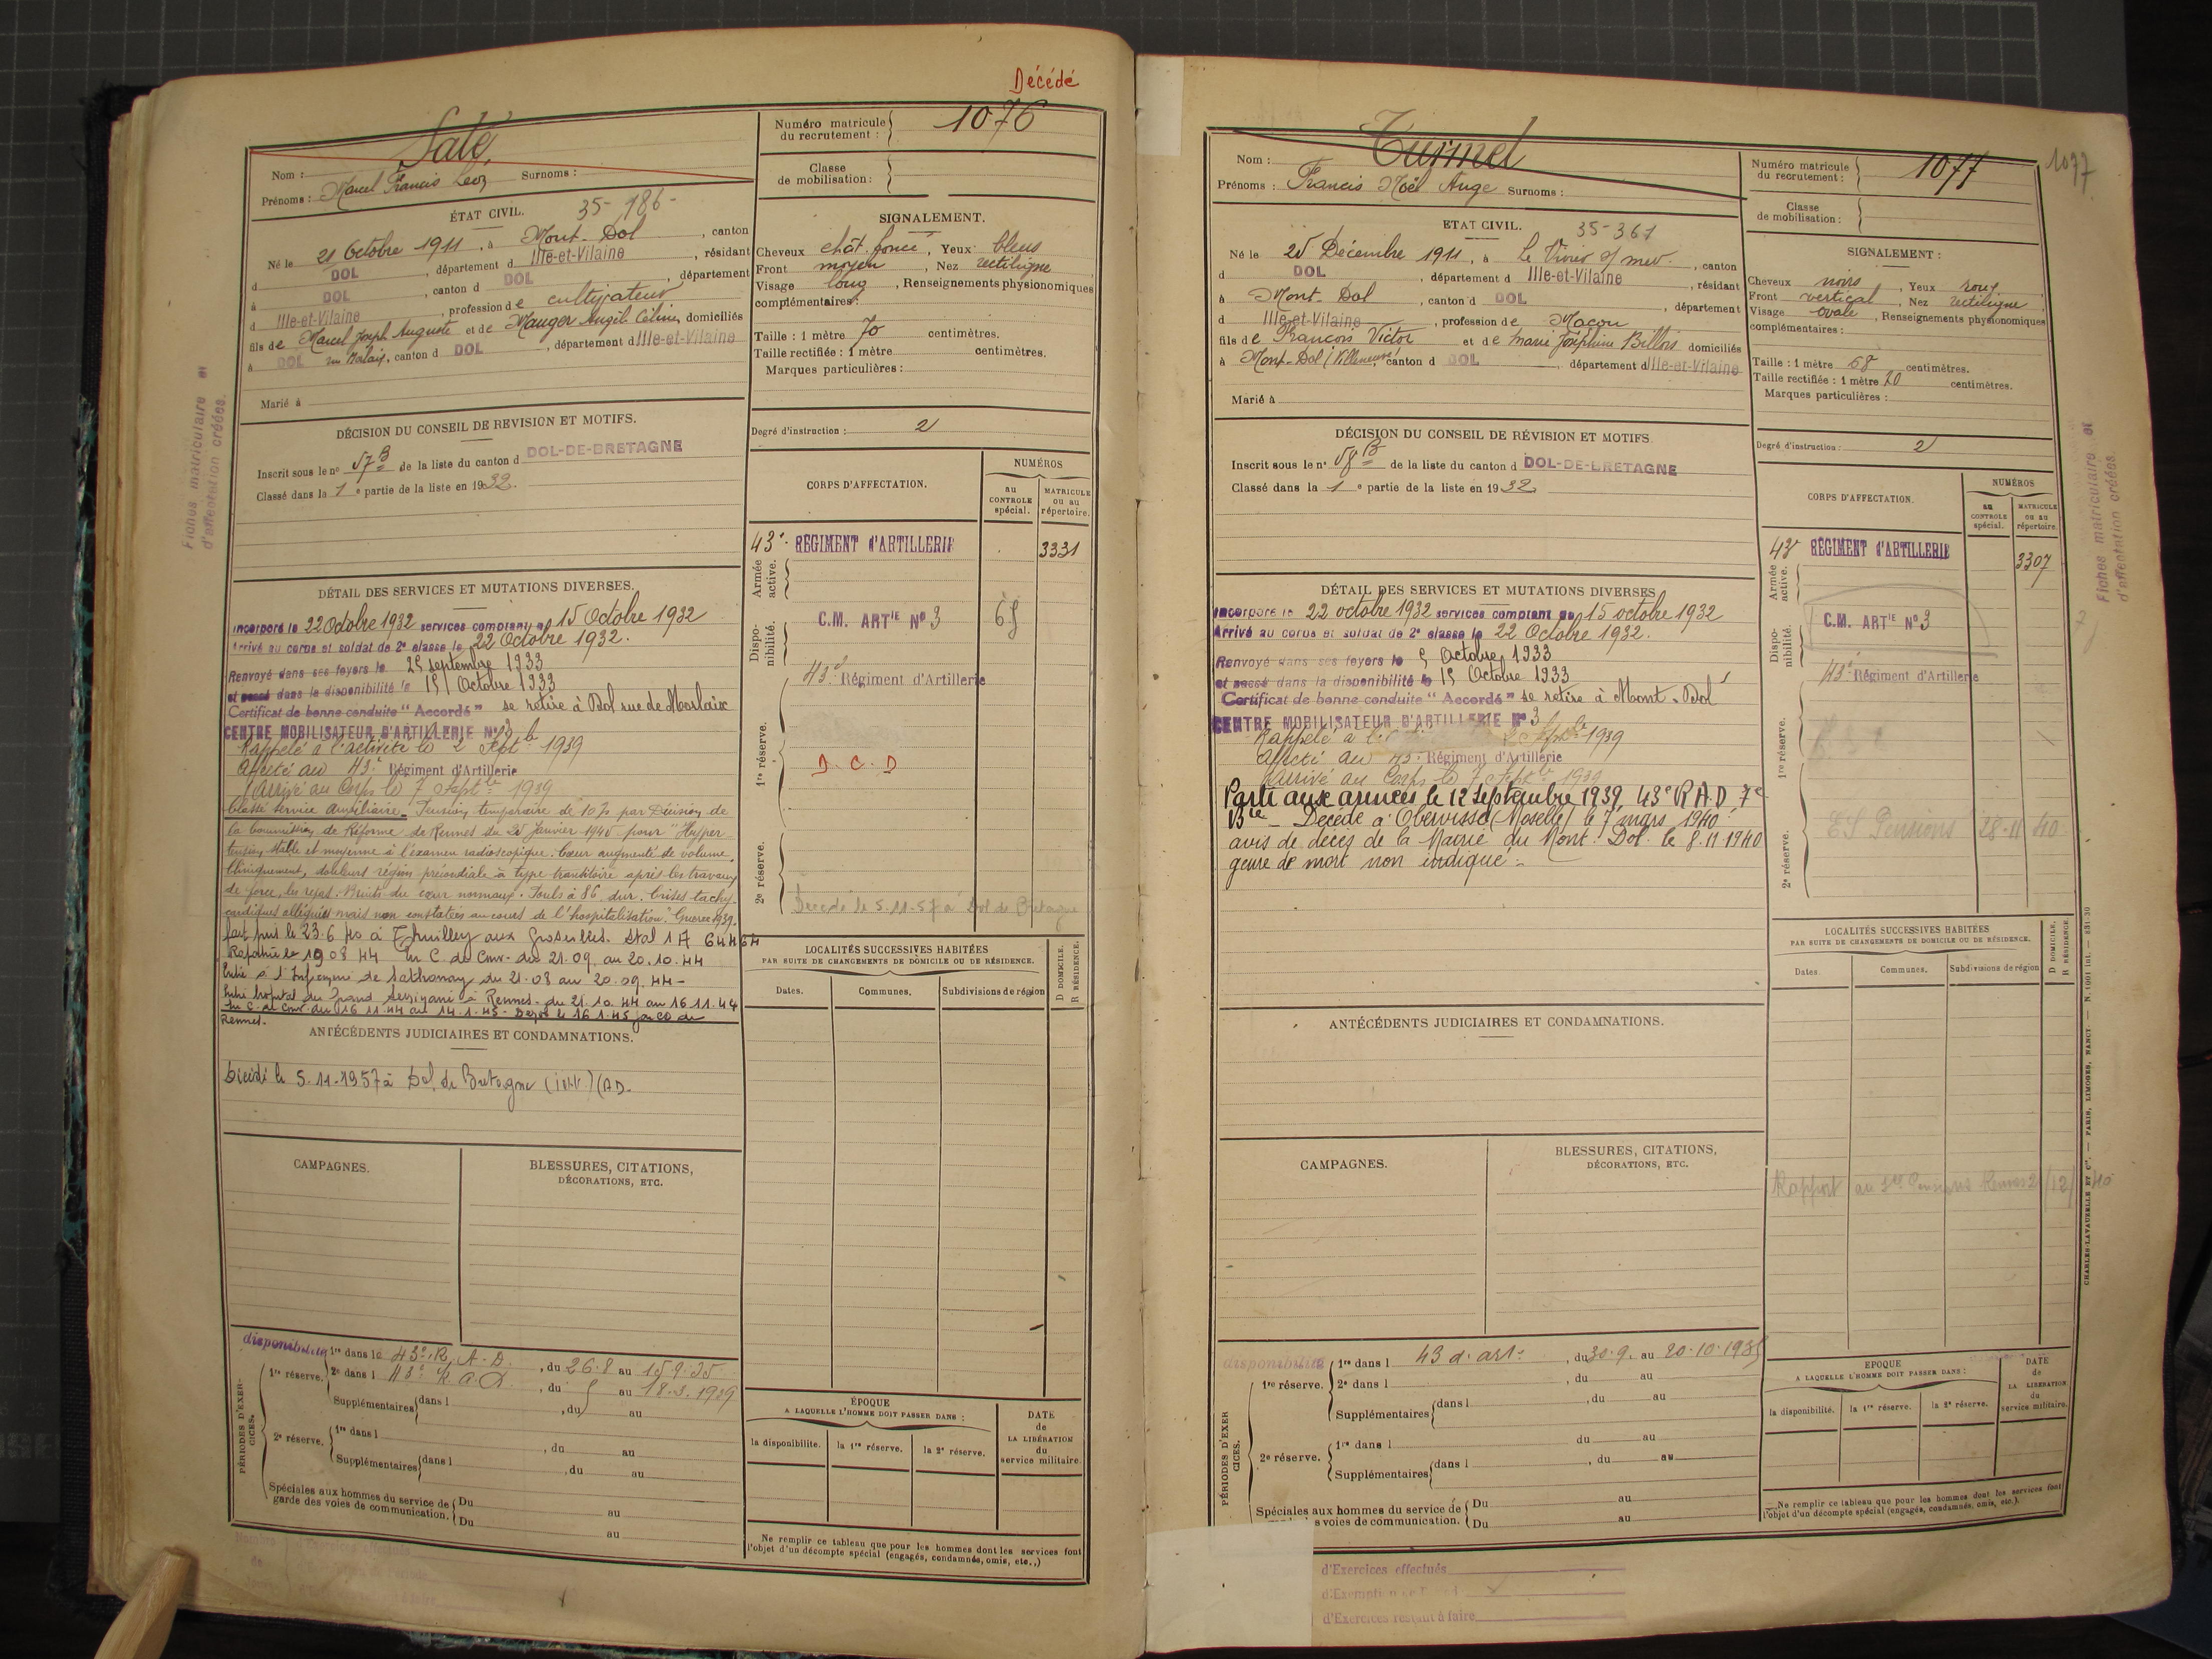 Décédé
Salé
Nom : Surnoms :
Prénoms : Marcel Francis Léon
ÉTAT CIVIL. 35-986-
Né le 21 Octobre 1911, à Mont-Dol, canton
d DOL, département d Ille-et-Vilaine, résidant
à DOL, canton d DOL, département
d Ille-et-Vilaine, profession de cultivateur
fils de Marcel Joseph Auguste et de Mauger Angèl. Céline, domiciliés
à DOL, canton d DOL, département d Ille-et-Vilaine
Marié à
DÉCISION DU CONSEIL DE REVISION ET MOTIFS.
Inscrit sous le n° 57 B de la liste du canton d DOL-DE-BRETAGNE
Classé dans la 1e partie de la liste en 1932.
DÉTAIL DES SERVICES ET MUTATIONS DIVERSES.
Incorporé le 22 Octobre 1932 services comptant du 15 Octobre 1932
Arrivé au corps et soldat de 2e classe le 22 Octobre 1932.
Renvoyé dans ses foyers le 25 septembre 1933
et passé dans la disponibilité le 15 Octobre 1933
Certificat de bonne conduite "Accordé" se retire à Dol rue de Morlaix
CENTRE MOBILISATEUR D'ARTILLERIE N° 3
Rappelé à l'activité le 2 Septbre 1939
Affecté au 43e Régiment d'Artillerie
Arrivé au Corps le 7 Septbre 1939
Classé service auxiliaire. Pension temporaire de 10 % par Décision de
la Commission de Réforme de Rennes du 25 Janvier 1940 pour "Hyper-
tension stable et moyenne à l'examen radioscopique. Cœur augmenté de volume.
Cliniquement, douleurs région précordiale à type transitoire après les travaux
de force, les repas. Bruits du cœur normaux. Pouls à 86 dur. Crises tachy-
cardiques alléguées mais non constatées au cours de l'hospitalisation." Guerre 1939.
fait pris le 23.6.40 à Thuilley aux Groseilles. Stal 1A 64464
Rapatrié le 19 08 44 En C de Conv. du 21.09. au 20.10.44
Entré à l'Infirmerie de Sathonay du 21.08 au 20.09.44-
Entré hopital du Grand Séminaire à Rennes. du 21.10.44 au 16.11.44
En C. de Conv. du 16 11.44 au 14.1.45 - Degré le 16 1.45 par CD de
Rennes.
ANTÉCÉDENTS JUDICIAIRES ET CONDAMNATIONS.
Décédé le 5.11.1957 à Dol de Bretagne
CAMPAGNES.
BLESSURES, CITATIONS,
DÉCORATIONS, ETC.
PÉRIODES D'EXERCICES.
disponibilité 1re dans le 43e R.A.D., du 26.8 au 15.9.35
1re réserve. 2e dans l 43e R.A.D, du 5 au 18.3.1939
Supplémentaires dans l , du au
2e réserve. 1re dans l , du au
Supplémentaires dans l , du au
Spéciales aux hommes du service de garde des voies de communication. Du au
Du au
Numéro matricule du recrutement : 1076
Classe de mobilisation :
SIGNALEMENT.
Cheveux chât. foncé, Yeux bleus
Front moyen, Nez rectiligne
Visage long, Renseignements physionomiques
complémentaires :
Taille : 1 mètre 70 centimètres.
Taille rectifiée : 1 mètre centimètres.
Marques particulières :
Degré d'instruction : 2
CORPS D'AFFECTATION.
NUMÉROS
au CONTROLE spécial.
MATRICULE ou au répertoire.
Armée active.
43e RÉGIMENT d'ARTILLERIE 3331
Disponibilité.
C.M. ARTIE N° 3
1re réserve.
43e Régiment d'Artillerie
D.C.D
2e réserve.
Décédé le 5.11.57 à Dol de Bretagne
LOCALITÉS SUCCESSIVES HABITÉES
PAR SUITE DE CHANGEMENTS DE DOMICILE OU DE RÉSIDENCE.
Dates. Communes. Subdivisions de région D DOMICILE. R RÉSIDENCE.
ÉPOQUE
A LAQUELLE L'HOMME DOIT PASSER DANS :
la disponibilité. la 1re réserve. la 2e réserve.
DATE de LA LIBÉRATION du service militaire.
Ne remplir ce tableau que pour les hommes dont les services font
l'objet d'un décompte spécial (engagés, condamnés, omis, etc.,)
Fiches matriculaire et
d'affectation créées.
Turmel
Nom :
Prénoms : Francis Noël Ange Surnoms :
ETAT CIVIL. 35-361
Né le 25 Décembre 1911, à Le Vivier s/mer, canton
d DOL, département d Ille-et-Vilaine, résidant
à Mont-Dol, canton d DOL, département
d Ille-et-Vilaine, profession de Maçon
fils de François Victor et de Marie Joséphine Billois domiciliés
à Mont-Dol (Villeneuve), canton d DOL, département d Ille-et-Vilaine
Marié à
DÉCISION DU CONSEIL DE RÉVISION ET MOTIFS.
Inscrit sous le n° 58 B de la liste du canton d DOL-DE-BRETAGNE
Classé dans la 1e partie de la liste en 1932
DÉTAIL DES SERVICES ET MUTATIONS DIVERSES
Incorporé le 22 octobre 1932 services comptant du 15 octobre 1932
Arrivé au corps et soldat de 2e classe le 22 Octobre 1932.
Renvoyé dans ses foyers le 5 Octobre 1933
et passé dans la disponibilité le 15 Octobre 1933
Certificat de bonne conduite "Accordé" se retire à Mont-Dol
CENTRE MOBILISATEUR D'ARTILLERIE N° 3
Rappelé à l' 2 Septbre 1939
Affecté au 43e Régiment d'Artillerie
Arrivé au Corps le 7 Septbre 1939
Parti aux armées le 12 Septembre 1939, 43e R.A.D 7e
Bie - Décédé à Obervisse (Moselle) le 7 mars 1940
avis de décès de la Mairie du Mont-Dol. le 8.11 1940
genre de mort non indiqué.-
ANTÉCÉDENTS JUDICIAIRES ET CONDAMNATIONS.
CAMPAGNES.
BLESSURES, CITATIONS,
DÉCORATIONS, ETC.
PÉRIODES D'EXERCICES.
disponibilité 1re dans l 43 d'arte, du 30.9. au 20.10.1935
1re réserve. 2e dans l , du au
Supplémentaires dans l , du au
2e réserve. 1re dans l du au
Supplémentaires dans l , du au
Spéciales aux hommes du service de Du au
voies de communication. Du au
d'Exercices effectués
d'Exercices restant à faire
Numéro matricule du recrutement : 1077
1077
Classe de mobilisation :
SIGNALEMENT :
Cheveux noirs, Yeux roux
Front vertical, Nez rectiligne
Visage ovale, Renseignements physionomiques
complémentaires :
Taille : 1 mètre 68 centimètres.
Taille rectifiée : 1 mètre 70 centimètres.
Marques particulières :
Degré d'instruction : 2
CORPS D'AFFECTATION.
NUMÉROS
au CONTROLE spécial.
MATRICULE ou au répertoire.
Armée active.
43e RÉGIMENT d'ARTILLERIE 3307
Disponibilité.
C.M. ARTIE N° 3
1re réserve.
43e Régiment d'Artillerie
2e réserve.
ES Pensions 28-11 40
LOCALITÉS SUCCESSIVES HABITÉES
PAR SUITE DE CHANGEMENTS DE DOMICILE OU DE RÉSIDENCE.
Dates. Communes. Subdivisions de région D DOMICILE. R RÉSIDENCE.
Rapport au Pensions Rennes 2/12/40
EPOQUE
A LAQUELLE L'HOMME DOIT PASSER DANS :
la disponibilité. la 1re réserve. la 2e réserve.
DATE de LA LIBERATION du service militaire.
Ne remplir ce tableau que pour les hommes dont les services font
l'objet d'un décompte spécial (engagés, condamnés, omis, etc.).
Fiches matriculaire et
d'affectation créées.
CHARLES-LAVAUZELLE ET Cie. — PARIS, LIMOGES, NANCY.